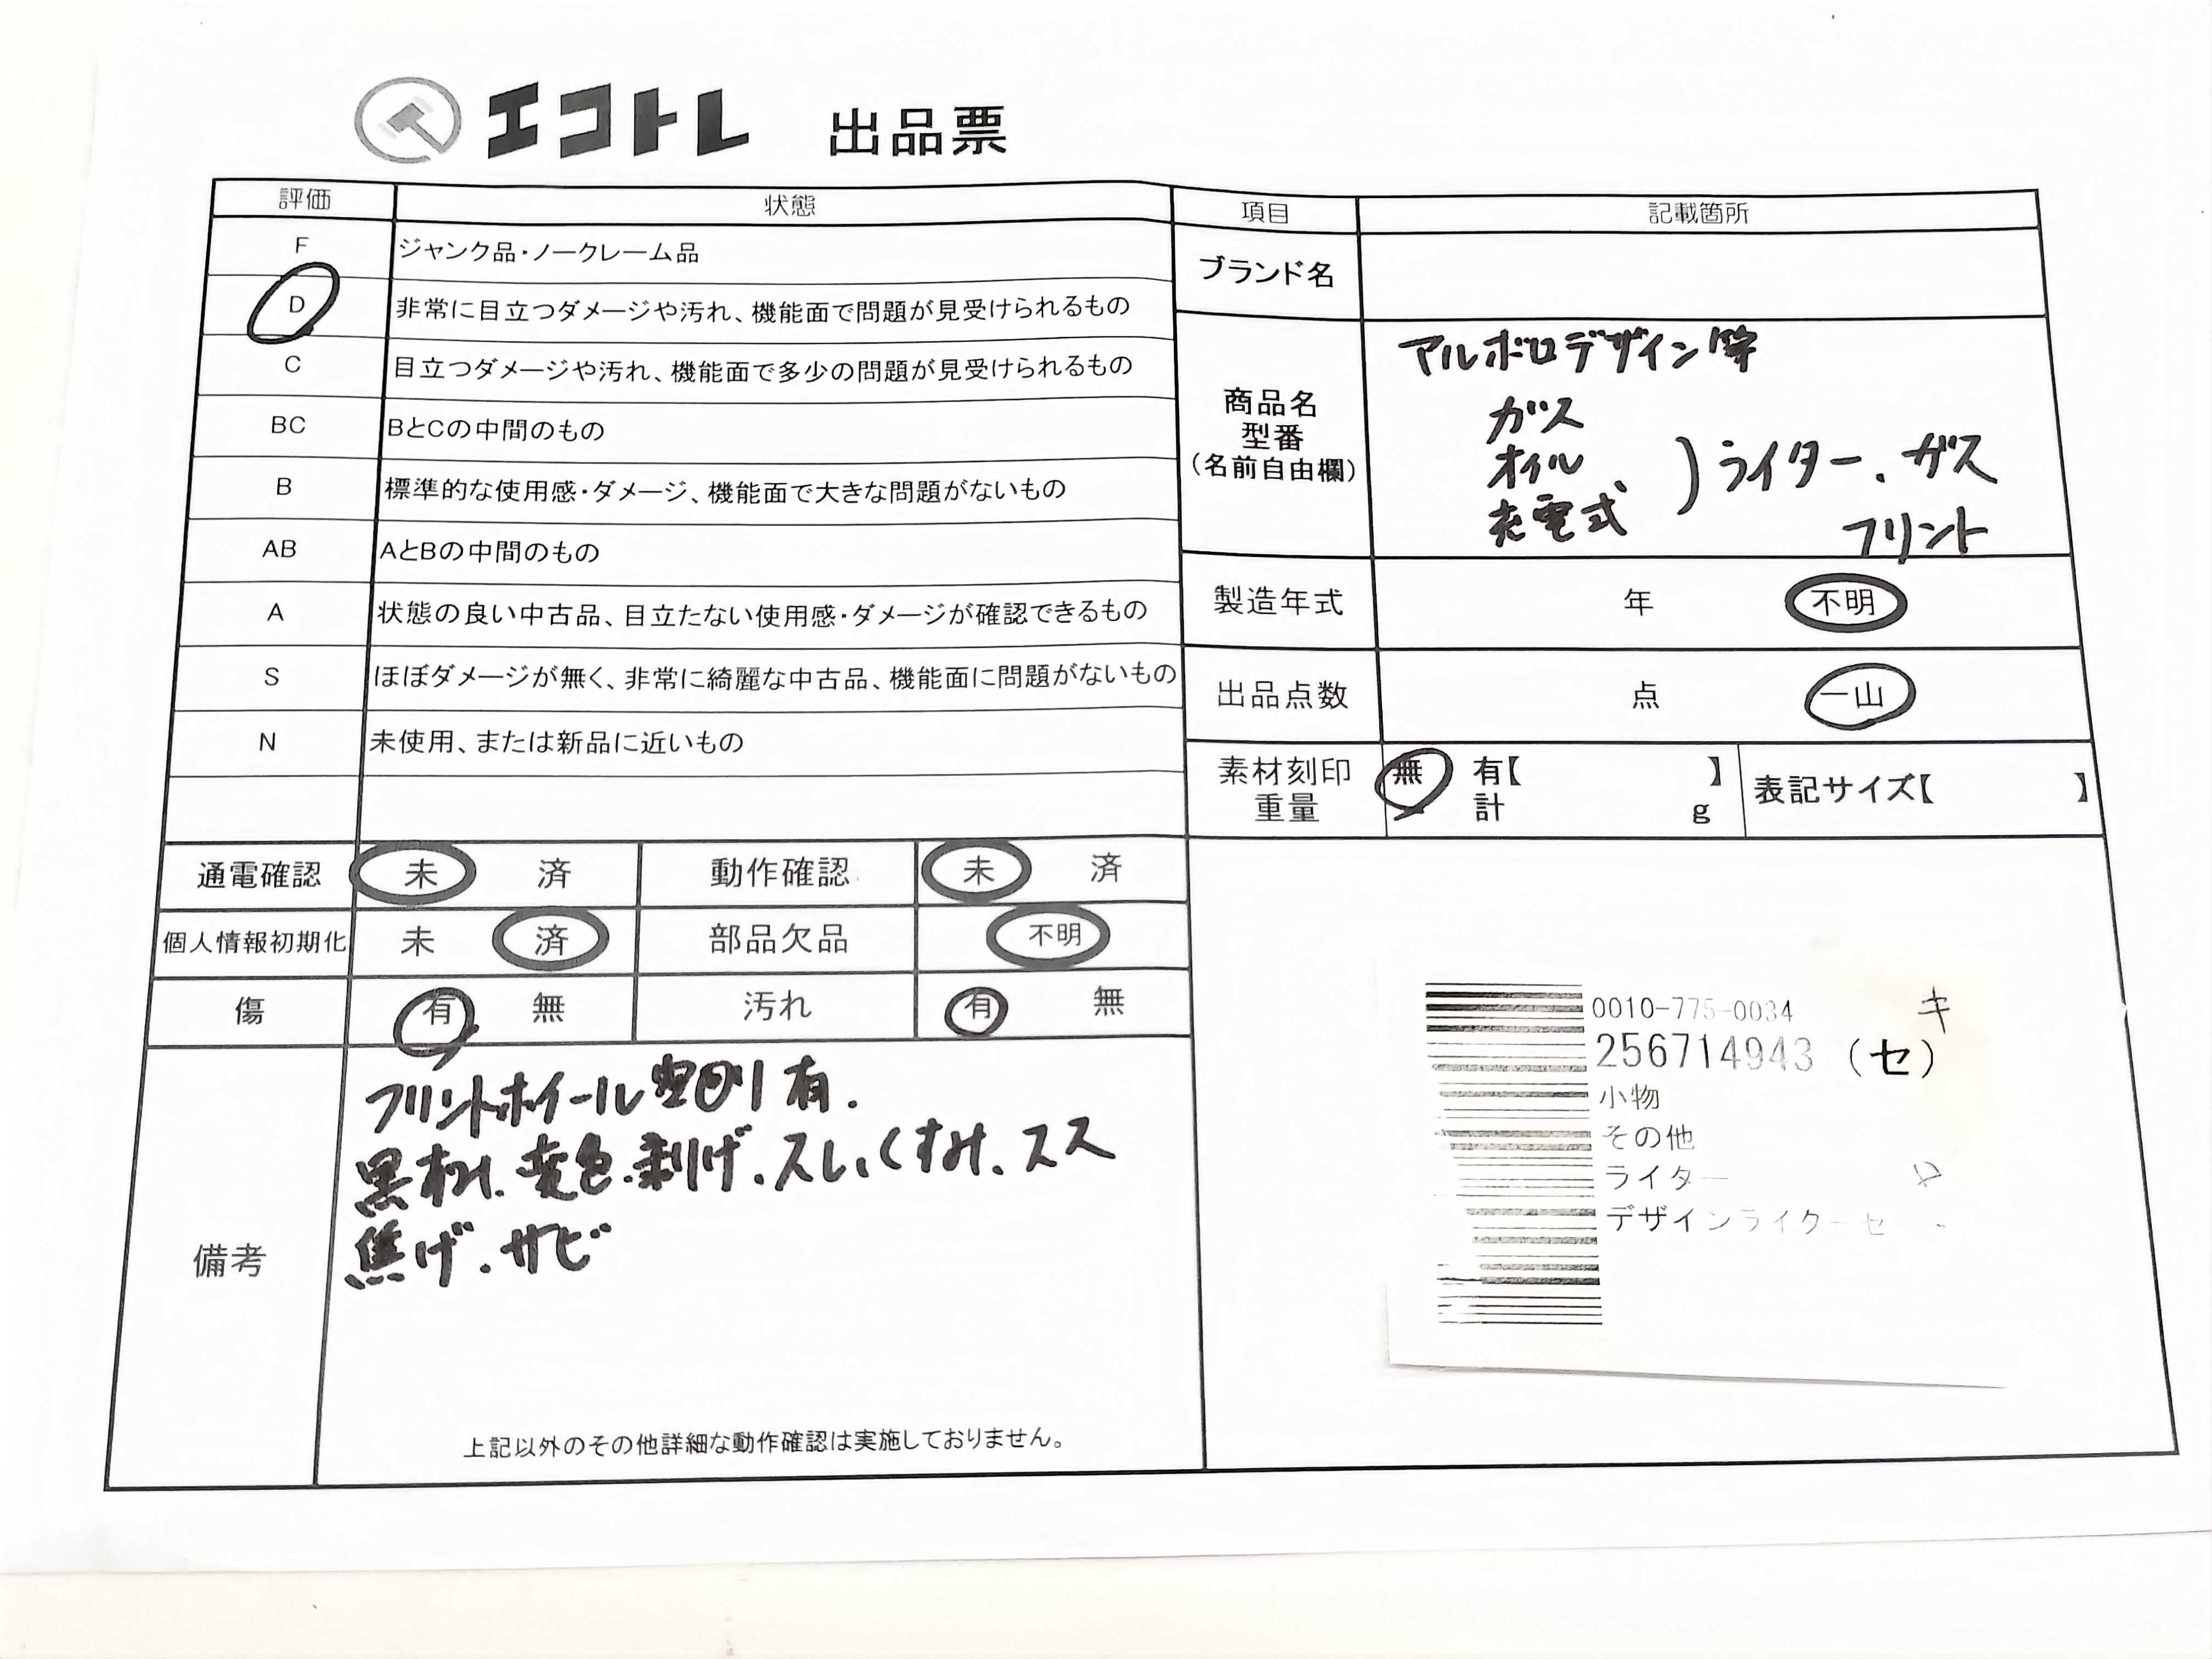 エコトレ 出品票
評価 状態
F ジャンク品・ノークレーム品
D 非常に目立つダメージや汚れ、機能面で問題が見受けられるもの
C 目立つダメージや汚れ、機能面で多少の問題が見受けられるもの
BC BとCの中間のもの
B 標準的な使用感・ダメージ、機能面で大きな問題がないもの
AB AとBの中間のもの
A 状態の良い中古品、目立たない使用感・ダメージが確認できるもの
S ほぼダメージが無く、非常に綺麗な中古品、機能面に問題がないもの
N 未使用、または新品に近いもの
通電確認 未 済 動作確認 未 済
個人情報初期化 未 済 部品欠品 不明
傷 有 無 汚れ 有 無
備考
フリントホイール空回り有.
黒ずみ、変色、剥げ、スレ、くすみ、スス
焦げ、サビ
上記以外のその他詳細な動作確認は実施しておりません。
項目 記載箇所
ブランド名
商品名
型番
(名前自由欄)
アルボロデザイン等
ガス
オイル
充電式
)ライター、ガス
フリント
製造年式 年 不明
出品点数 点 一山
素材刻印 無 有【 】
重量 計 g
表記サイズ【 】
0010-775-0034 キ
256714943 (セ)
小物
その他
ライター
デザインライターセ